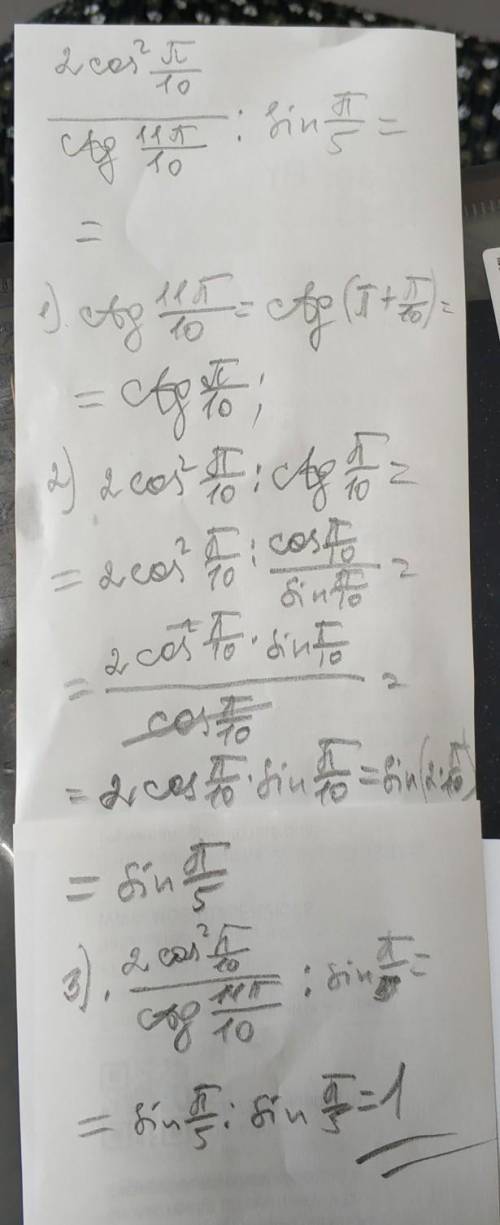 2cos² π/10 / ctg 11π/10 : sin π/5 =
=
1). ctg 11π/10 = ctg (π + π/10) =
= ctg π/10 ;
2) 2cos² π/10 : ctg π/10 =
= 2cos² π/10 : cos π/10 / sin π/10 =
= 2cos² π/10 · sin π/10 / cos π/10 =
= 2cos π/10 · sin π/10 = sin (2·π/10)
= sin π/5
3). 2cos² π/10 / ctg 11π/10 : sin π/5 =
= sin π/5 : sin π/5 = 1